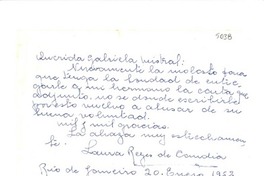 5038
Querida Gabriela Mistral:
Nuevamente la molesto para
que tenga la bondad de entre-
garle a mi hermano la carta que
adjunto, no se donde escribirle
y resto mucho a abusar de su
buena voluntad.
Mil y mil gracias.
La abraza muy estrechamen-
te.
Laura Reyes de
Rio de Janeiro 20. Enero 1953